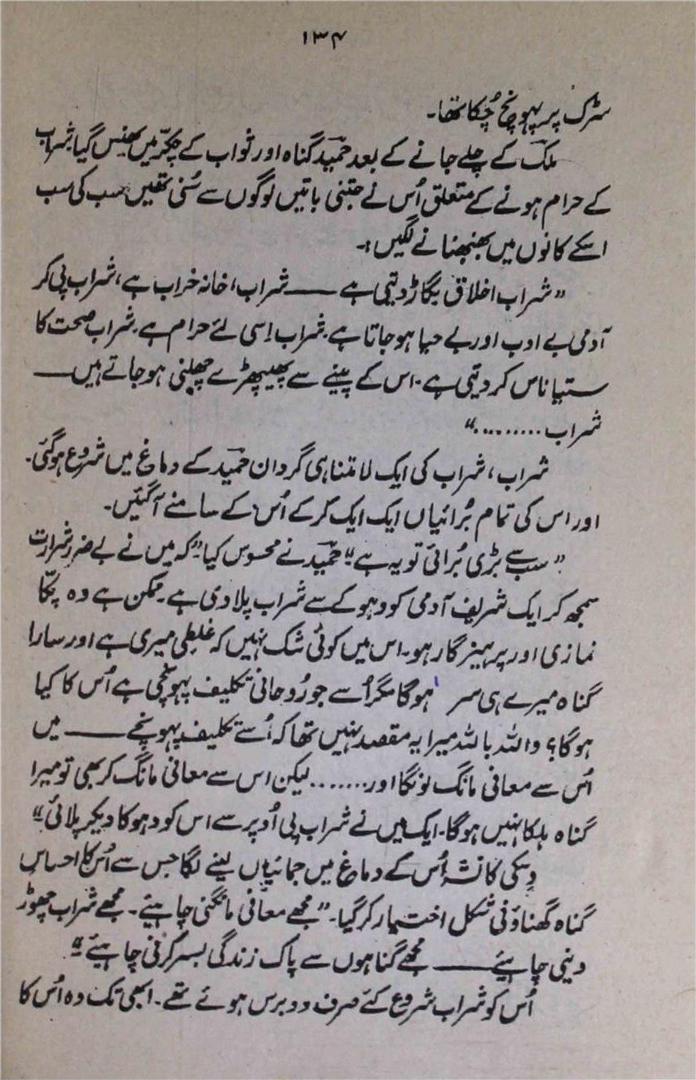 ۱۳۴
سڑک پر پہونچ چُکا تھا۔
ملک کے چلے جانے کے بعد حمید گناہ اور ثواب کے چکر میں پھنس گیا۔ شراب
کے حرام ہونے کے متعلق اُس نے جتنی باتیں لوگوں سے سُنی تھیں سب کی سب
اسکے کانوں میں بھنبھنانے لگیں :۔
”شراب اخلاق بگاڑ دیتی ہے —— شراب، خانہ خراب ہے، شراب پی کر
آدمی بے ادب اور بے حیا ہو جاتا ہے۔ شراب اِسی لئے حرام ہے۔ شراب صحت کا
ستیاناس کر دیتی ہے۔ اس کے پینے سے پھیپھڑے چھلنی ہو جاتے ہیں ——
شراب ........“
شراب، شراب کی ایک لامتناہی گردان حمید کے دماغ میں شروع ہو گئی۔
اور اس کی تمام بُرائیاں ایک ایک کر کے اُس کے سامنے آگئیں۔
”سب سے بڑی بُرائی تو یہ ہے“ حمید نے محسوس کیا ”کہ میں نے بے ضرر شرارت
سمجھ کر ایک شریف آدمی کو دہوکے سے شراب پلا دی ہے۔ ممکن ہے وہ پکا
نمازی اور پرہیزگار ہو۔ اس میں کوئی شک نہیں کہ غلطی میری ہے اور سارا
گناہ میرے ہی سر ہوگا مگر اُسے جو رُوحانی تکلیف پہونچی ہے اُس کا کیا
ہوگا؟ واللہ باللہ میرا یہ مقصد نہیں تھا کہ اُسے تکلیف پہونچے —— میں
اُس سے معافی مانگ لونگا اور ....... لیکن اس سے معافی مانگ کر بھی تو میرا
گناہ ہلکا نہیں ہوگا۔ ایک میں نے شراب پی اُوپر سے اس کو دہوکا دیکر پلائی“
وِسکی کا نشہ اُس کے دماغ میں جمائیاں لینے لگا جس سے اُس کا احساسِ
گناہ گھناؤنی شکل اختیار کر گیا۔ ”مجھے معافی مانگنی چاہیئے۔ مجھے شراب چھوڑ
دینی چاہیئے —— مجھے گناہوں سے پاک زندگی بسر کرنی چاہیئے“
اُس کو شراب شروع کئے صرف دو برس ہوئے تھے۔ ابھی تک وہ اُس کا